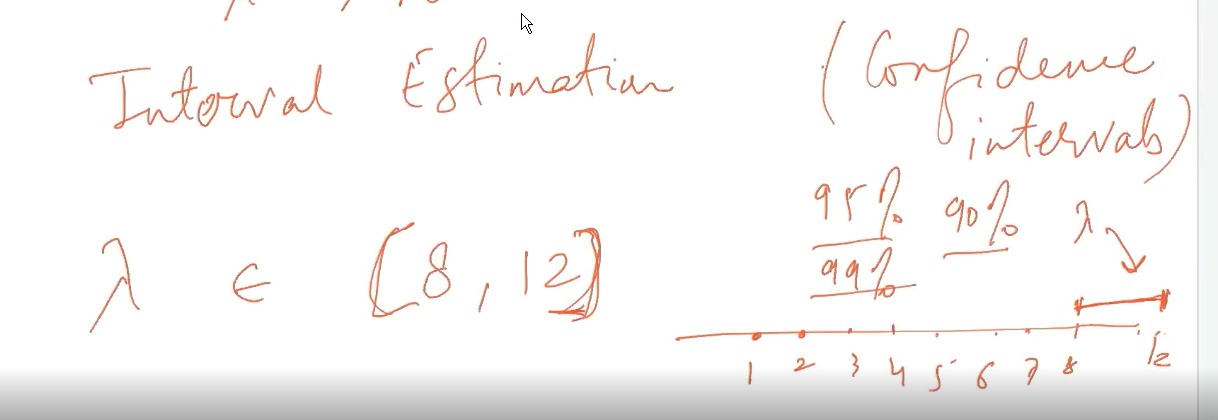 Interval Estimation (Confidence
intervals)
95% 90% λ
99%
λ ∈ [8, 12]
1 2 3 4 5 6 7 8 12